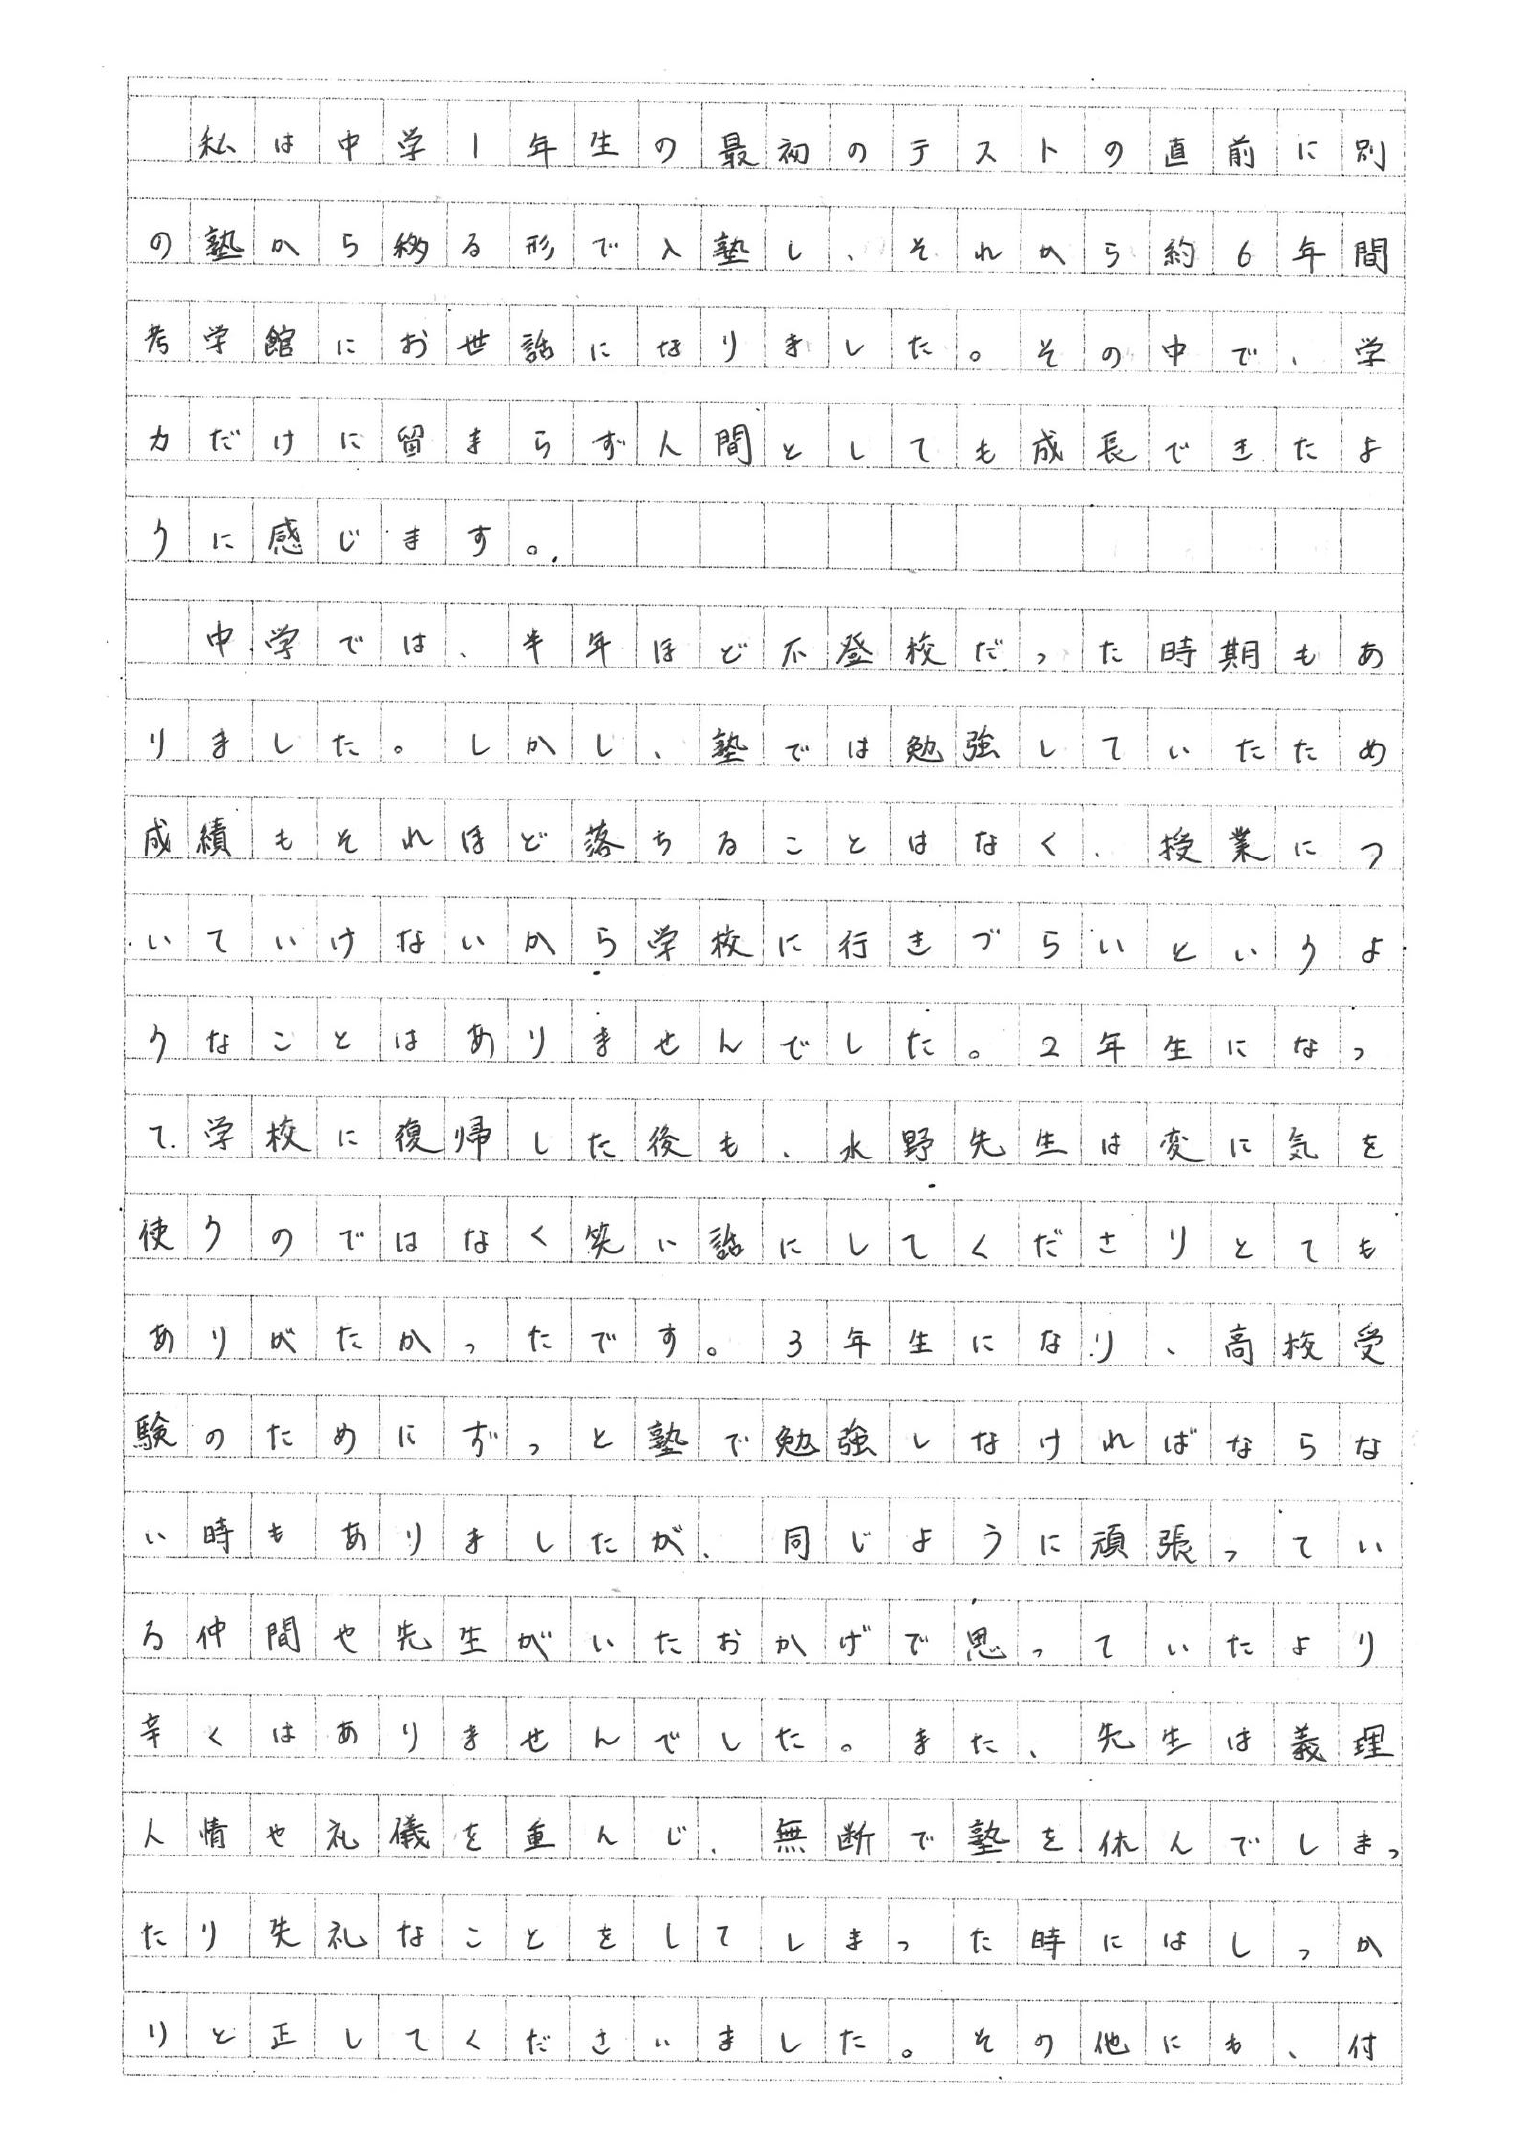 私は中学1年生の最初のテストの直前に別
の塾から移る形で入塾し、それから約6年間
考学館にお世話になりました。その中で、学
力だけに留まらず人間としても成長できたよ
うに感じます。
　中学では、半年ほど不登校だった時期もあ
りました。しかし、塾では勉強していたため
成績もそれほど落ちることはなく、授業につ
いていけないから学校に行きづらいというよ
うなことはありませんでした。2年生になっ
て学校に復帰した後も、水野先生は変に気を
使うのではなく笑い話にしてくださりとても
ありがたかったです。3年生になり、高校受
験のためにずっと塾で勉強しなければならな
い時もありましたが、同じように頑張ってい
る仲間や先生がいたおかげで思っていたより
辛くはありませんでした。また、先生は義理
人情や礼儀を重んじ、無断で塾を休んでしまっ
たり失礼なことをしてしまった時にはしっか
りと正してくださいました。その他にも、付